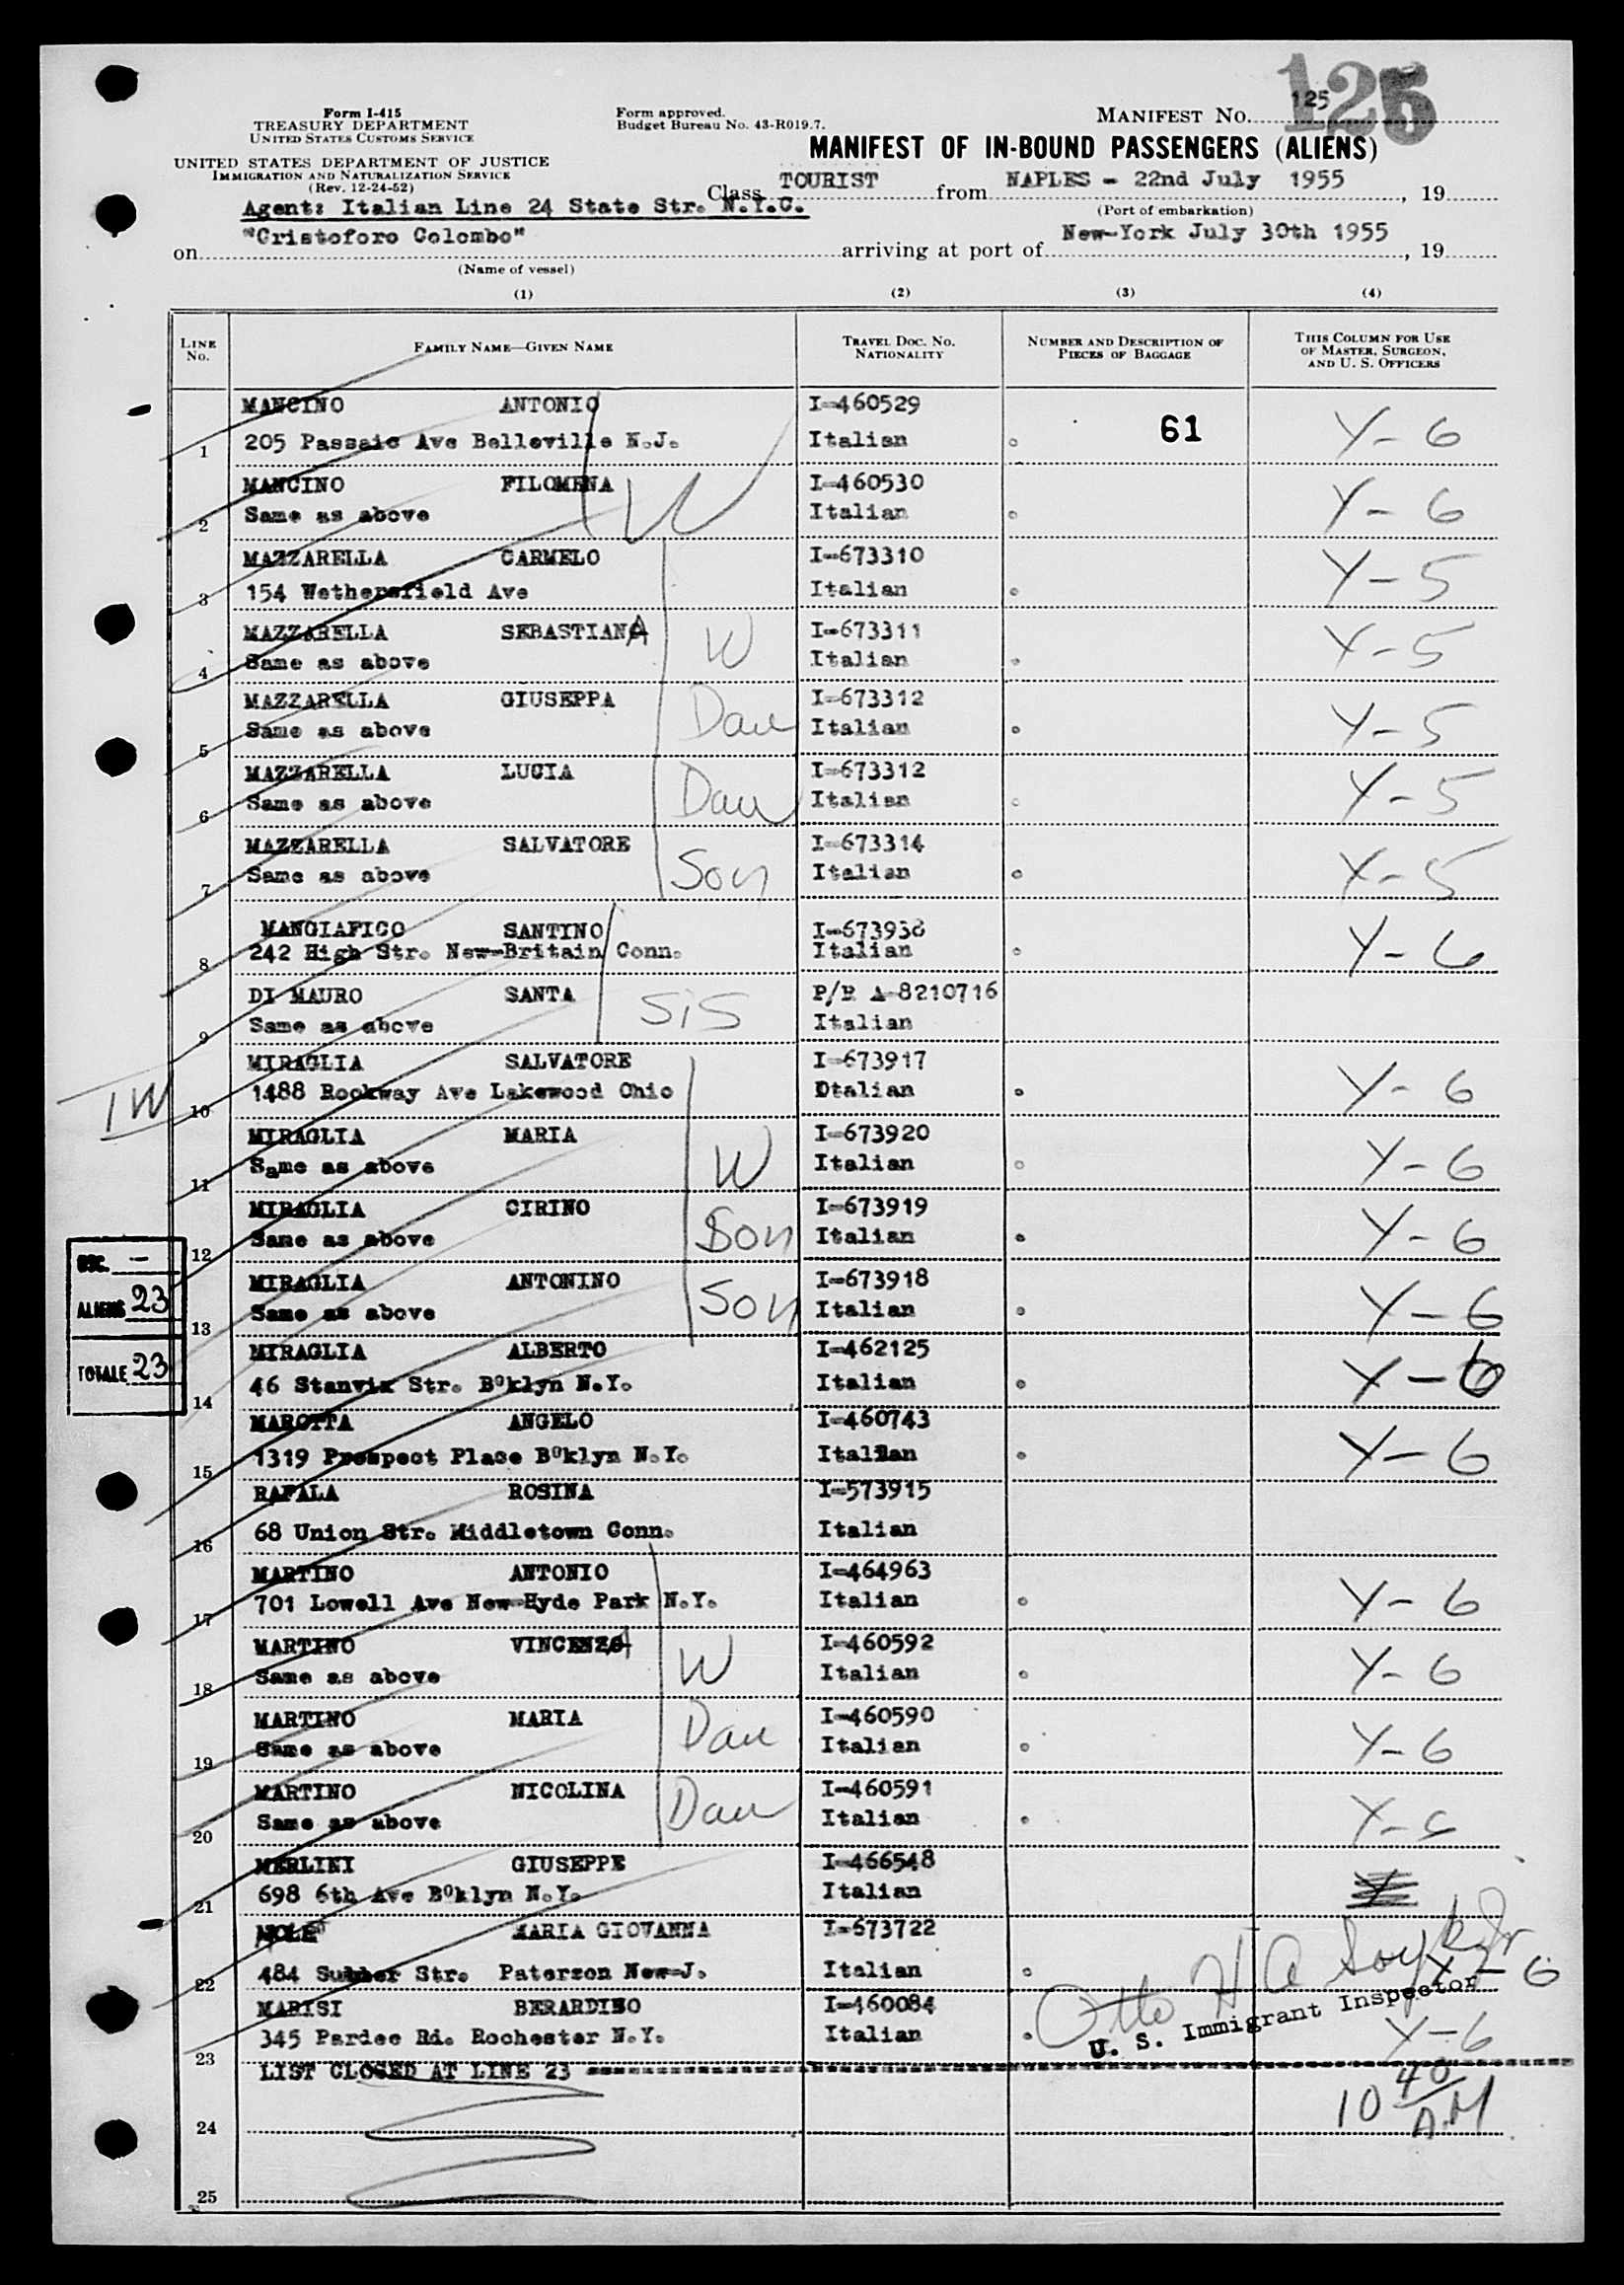 125
Form I-415
TREASURY DEPARTMENT
UNITED STATES CUSTOMS SERVICE
UNITED STATES DEPARTMENT OF JUSTICE
IMMIGRATION AND NATURALIZATION SERVICE
(Rev. 12-24-52)
Form approved.
Budget Bureau No. 43-R019.7.
MANIFEST NO. 125
MANIFEST OF IN-BOUND PASSENGERS (ALIENS)
Class TOURIST from NAPLES - 22nd July 1955, 19
(Port of embarkation)
Agent: Italian Line 24 State Str. N.Y.C.
on "Cristoforo Colombo" arriving at port of New-York July 30th 1955, 19
(Name of vessel)
(1) (2) (3) (4)
LINE NO. FAMILY NAME—GIVEN NAME TRAVEL DOC. NO. NATIONALITY NUMBER AND DESCRIPTION OF PIECES OF BAGGAGE THIS COLUMN FOR USE OF MASTER, SURGEON, AND U. S. OFFICERS
MANCINO ANTONIO I-460529
1 205 Passaic Ave Belleville N.J. Italian 61 Y-6
MANCINO FILOMENA I-460530
2 Same as above W Italian Y-6
MAZZARELLA CARMELO I-673310
3 154 Wethersfield Ave Italian Y-5
MAZZARELLA SEBASTIANA I-673311
4 Same as above W Italian Y-5
MAZZARELLA GIUSEPPA I-673312
5 Same as above Dau Italian Y-5
MAZZARELLA LUCIA I-673312
6 Same as above Dau Italian Y-5
MAZZARELLA SALVATORE I-673314
7 Same as above Son Italian Y-5
MANGIAFICO SANTINO I-673938
8 242 High Str. New-Britain Conn. Italian Y-6
DI MAURO SANTA P/R A-8210716
9 Same as above Sis Italian
MIRAGLIA SALVATORE I-673917
1W
10 1488 Rockway Ave Lakewood Ohio Dtalian Y-6
MIRAGLIA MARIA I-673920
11 Same as above W Italian Y-6
MIRAGLIA CIRINO I-673919
12 Same as above Son Italian Y-6
USC. -
ALIENS 23
TOTALE 23
MIRAGLIA ANTONINO I-673918
13 Same as above Son Italian Y-6
MIRAGLIA ALBERTO I-462125
14 46 Stanvix Str. Boklyn N.Y. Italian Y-6
MAROTTA ANGELO I-460743
15 1319 Prospect Place Boklyn N.Y. Italian Y-6
RAFALA ROSINA I-573915
16 68 Union Str. Middletown Conn. Italian
MARTINO ANTONIO I-464963
17 701 Lowell Ave New-Hyde Park N.Y. Italian Y-6
MARTINO VINCENZA I-460592
18 Same as above W Italian Y-6
MARTINO MARIA I-460590
19 Same as above Dau Italian Y-6
MARTINO NICOLINA I-460591
20 Same as above Dau Italian Y-6
MERLINI GIUSEPPE I-466548
21 698 6th Ave Boklyn N.Y. Italian
MOLE' MARIA GIOVANNA I-673722
22 484 Summer Str. Paterson New-J. Italian Y-6
Otto H A
U. S. Immigrant Inspector
MARISI BERARDINO I-460084
23 345 Pardee Rd. Rochester N.Y. Italian Y-6
LIST CLOSED AT LINE 23
10 40 A.M
24
25